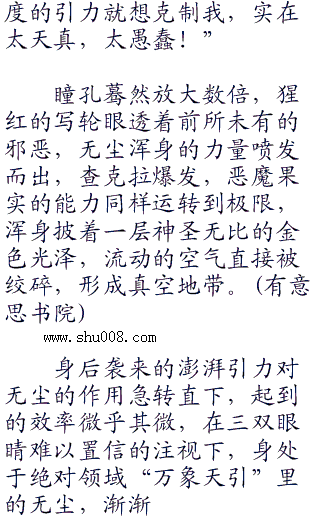 度的引力就想克制我，实在
太天真，太愚蠢！”
瞳孔蓦然放大数倍，猩
红的写轮眼透着前所未有的
邪恶，无尘浑身的力量喷发
而出，查克拉爆发，恶魔果
实的能力同样运转到极限，
浑身披着一层神圣无比的金
色光泽，流动的空气直接被
绞碎，形成真空地带。(有意
思书院)
www.shu008.com
身后袭来的澎湃引力对
无尘的作用急转直下，起到
的效率微乎其微，在三双眼
睛难以置信的注视下，身处
于绝对领域“万象天引”里
的无尘，渐渐